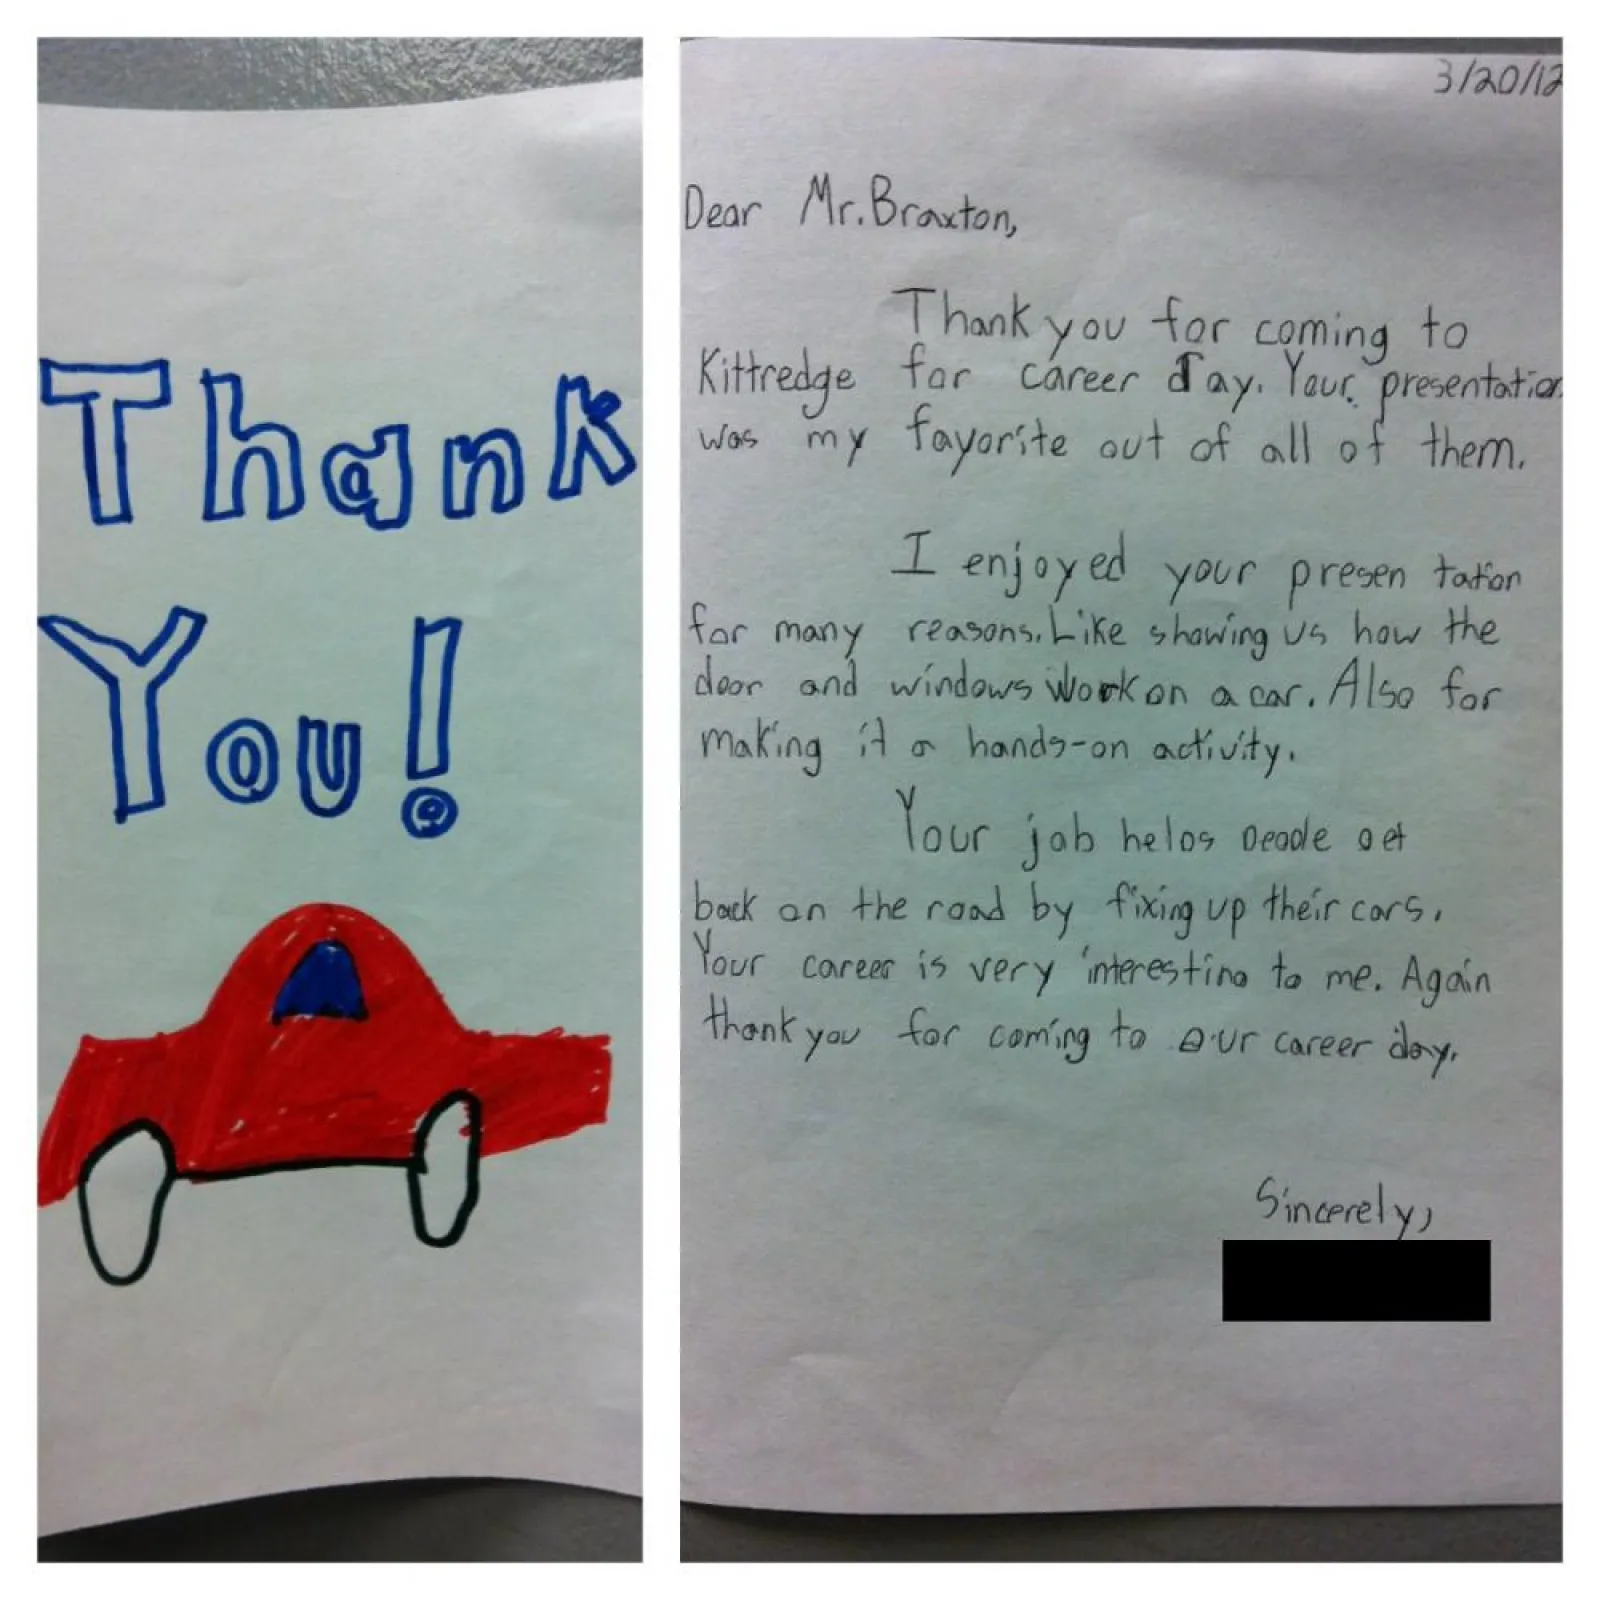 Thank
You!
3/20/12
Dear Mr. Braxton,
Thank you for coming to
Kittredge for career day. Your presentation
was my favorite out of all of them.
I enjoyed your presentation
for many reasons. Like showing us how the
door and windows work on a car. Also for
making it a hands-on activity.
Your job helps people get
back on the road by fixing up their cars.
Your career is very interesting to me. Again
thank you for coming to our career day.
Sincerely,